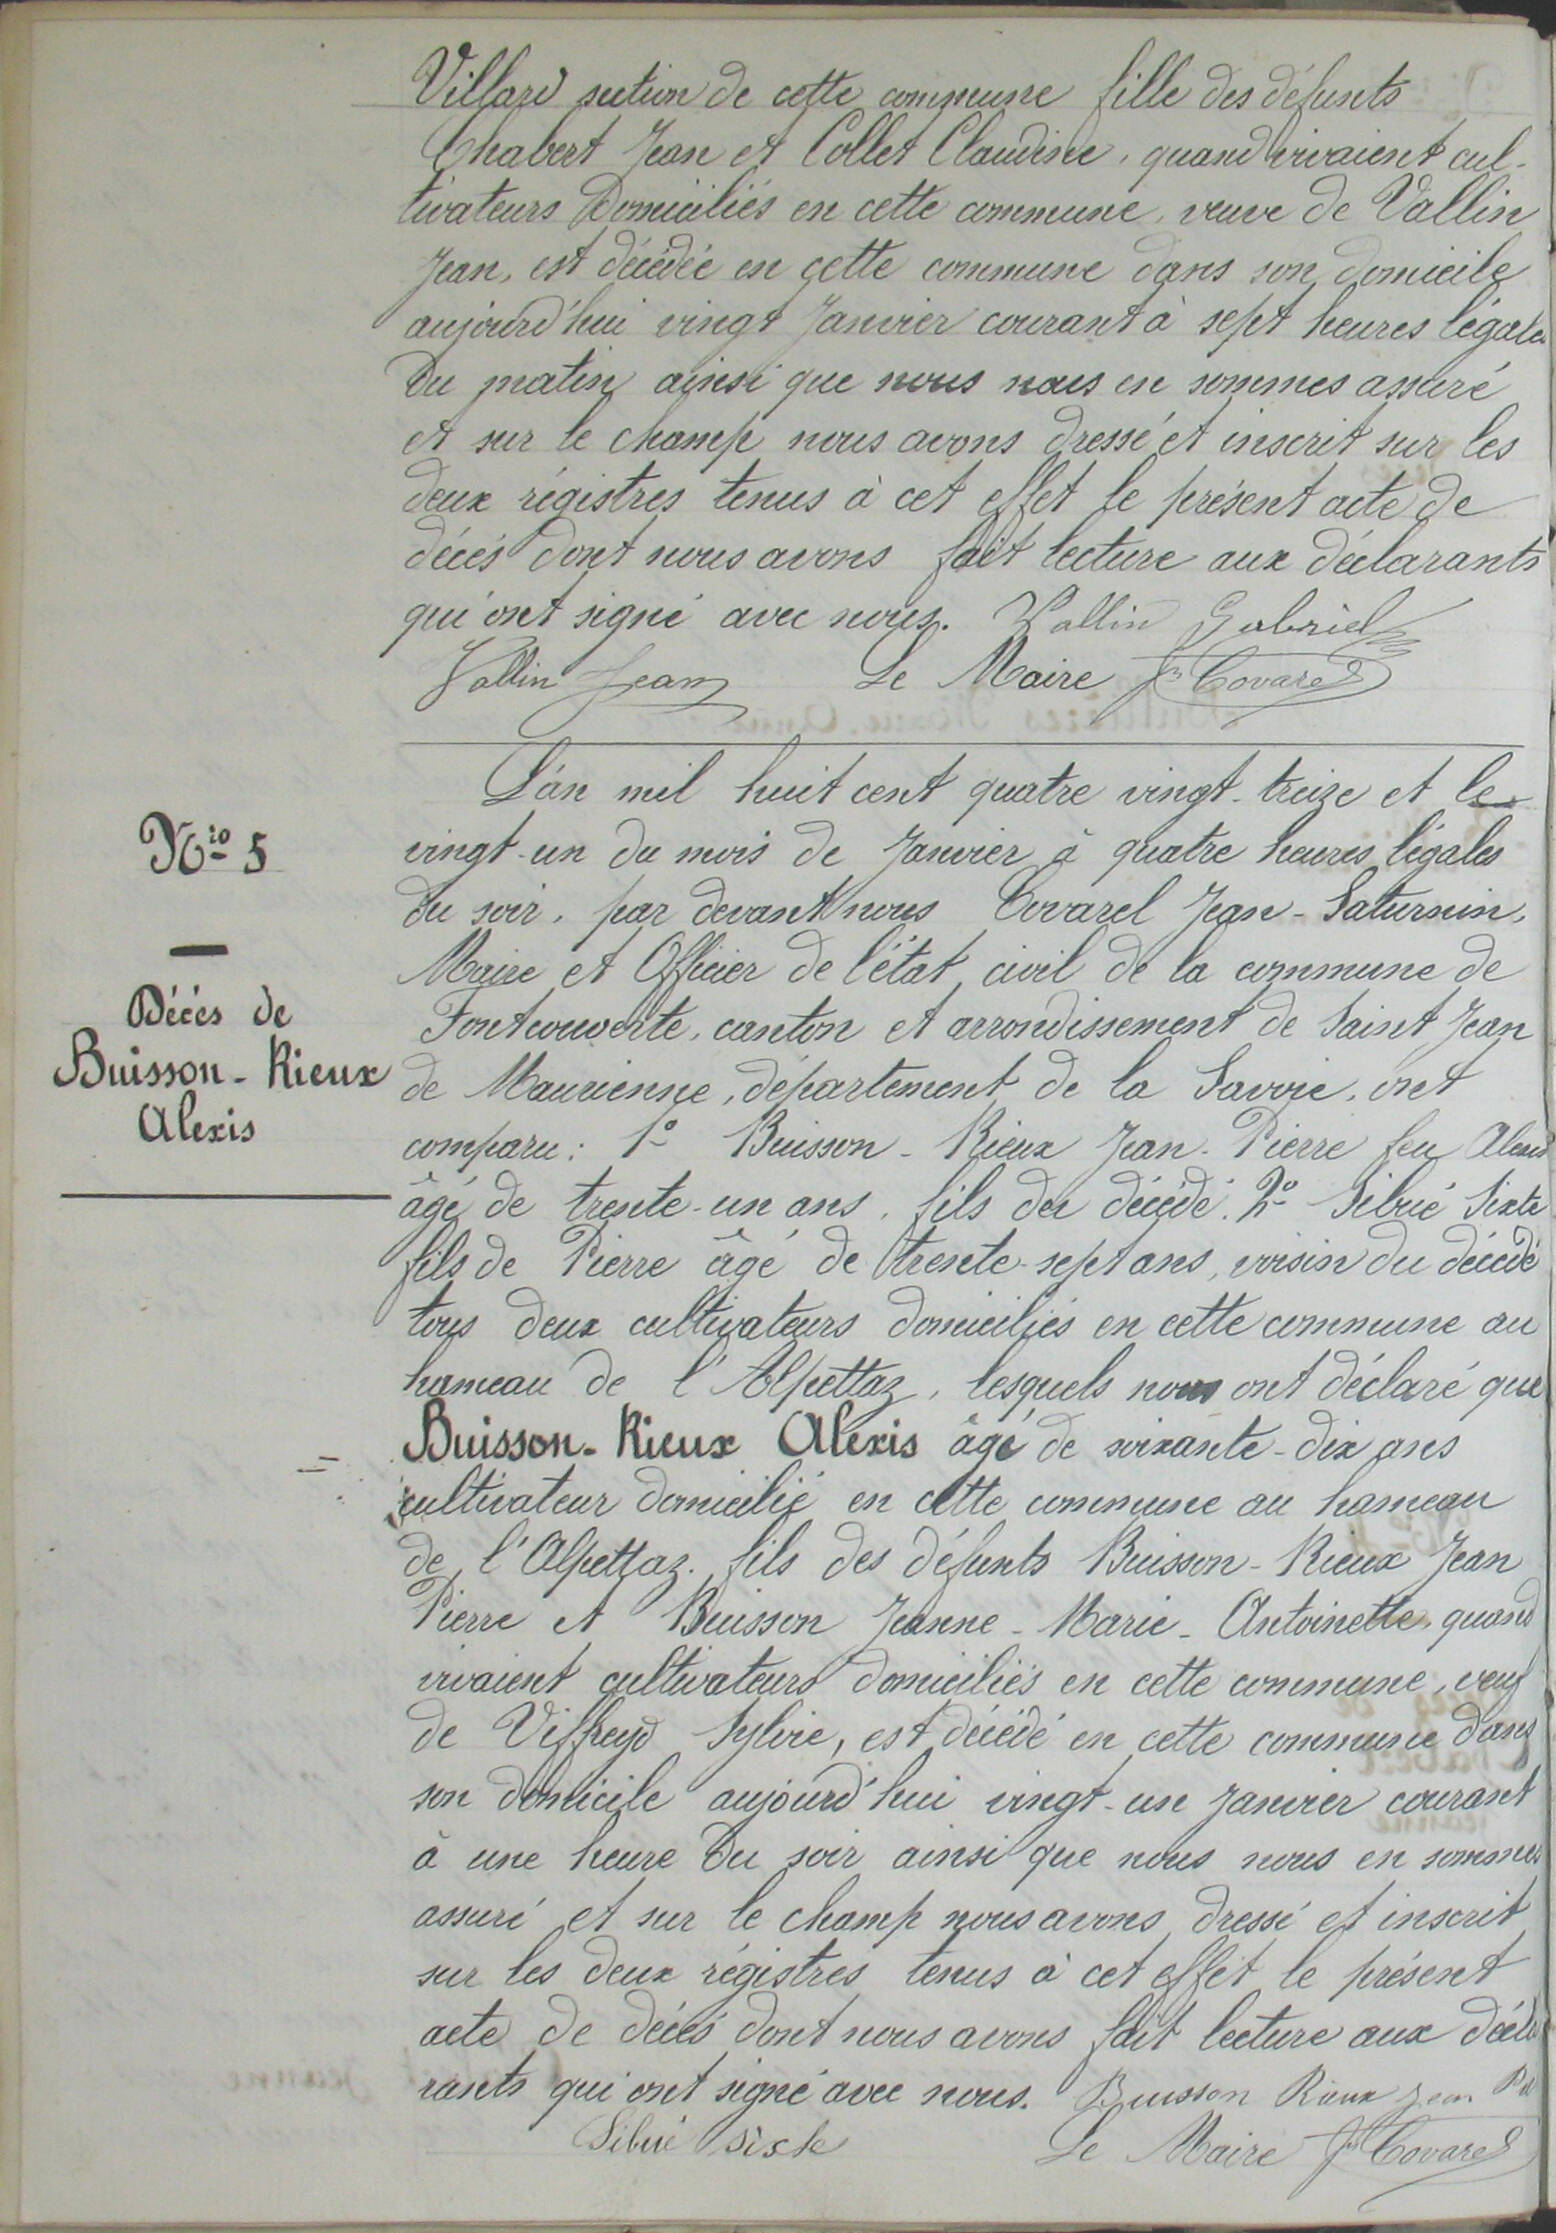 Villard section de cette commune fille des défunts
Chabert Jean et Collet Claudine, quand vivaient cul-
tivateurs domiciliés en cette commune, veuve de Vallin
Jean, est décédée en cette commune dans son domicile
aujourd'hui vingt Janvier courant à sept heures légales
du matin ainsi que nous nous en sommes assuré
et sur le champ nous avons dressé et inscrit sur les
deux régistres tenus à cet effet le présent acte de
décès dont nous avons fait lecture aux déclarants
qui ont signé avec nous. Vallin Gabriel
Vallin Jean Le Maire Jn Covarel
Nio 5
Décés de
Buisson-Rieux
Alexis
L'an mil huit cent quatre vingt-treize et le
vingt-un du mois de Janvier à quatre heures légales
du soir, par devant nous Covarel Jean-Saturnin,
Maire et Officier de l'état civil de la commune de
Fontcouverte, canton et arrondissement de Saint Jean
de Maurienne, département de la Savoie, ont
comparu: 1o Buisson-Rieux Jean-Pierre feu Alexis
âgé de trente-un ans, fils du décédé. 2o Sibué Sixte
fils de Pierre âgé de trente-sept ans, voisin du décédé
tous deux cultivateurs domiciliés en cette commune au
hameau de l'Alpettaz, lesquels nous ont déclaré que
Buisson-Rieux Alexis âgé de soixante-dix ans
cultivateur domicilié en cette commune au hameau
de l'Alpettaz. fils des défunts Buisson-Rieux Jean
Pierre et Buisson Jeanne-Marie-Antoinette, quand
vivaient cultivateurs domiciliés en cette commune, veuf
de Viffreyd Sylvie, est décédé en cette commune dans
son domicile aujourd'hui vingt-un Janvier courant
à une heure du soir ainsi que nous nous en sommes
assuré et sur le champ nous avons dressé et inscrit
sur les deux régistres tenus à cet effet le présent
acte de décès dont nous avons fait lecture aux décla
rants qui ont signé avec nous. Buisson Rieux Jean
Sibué sixte Le Maire Jn Covarel